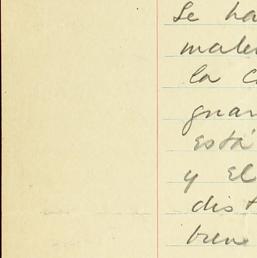 Se ha
mater
la C
guar
está
y El
dist
bien